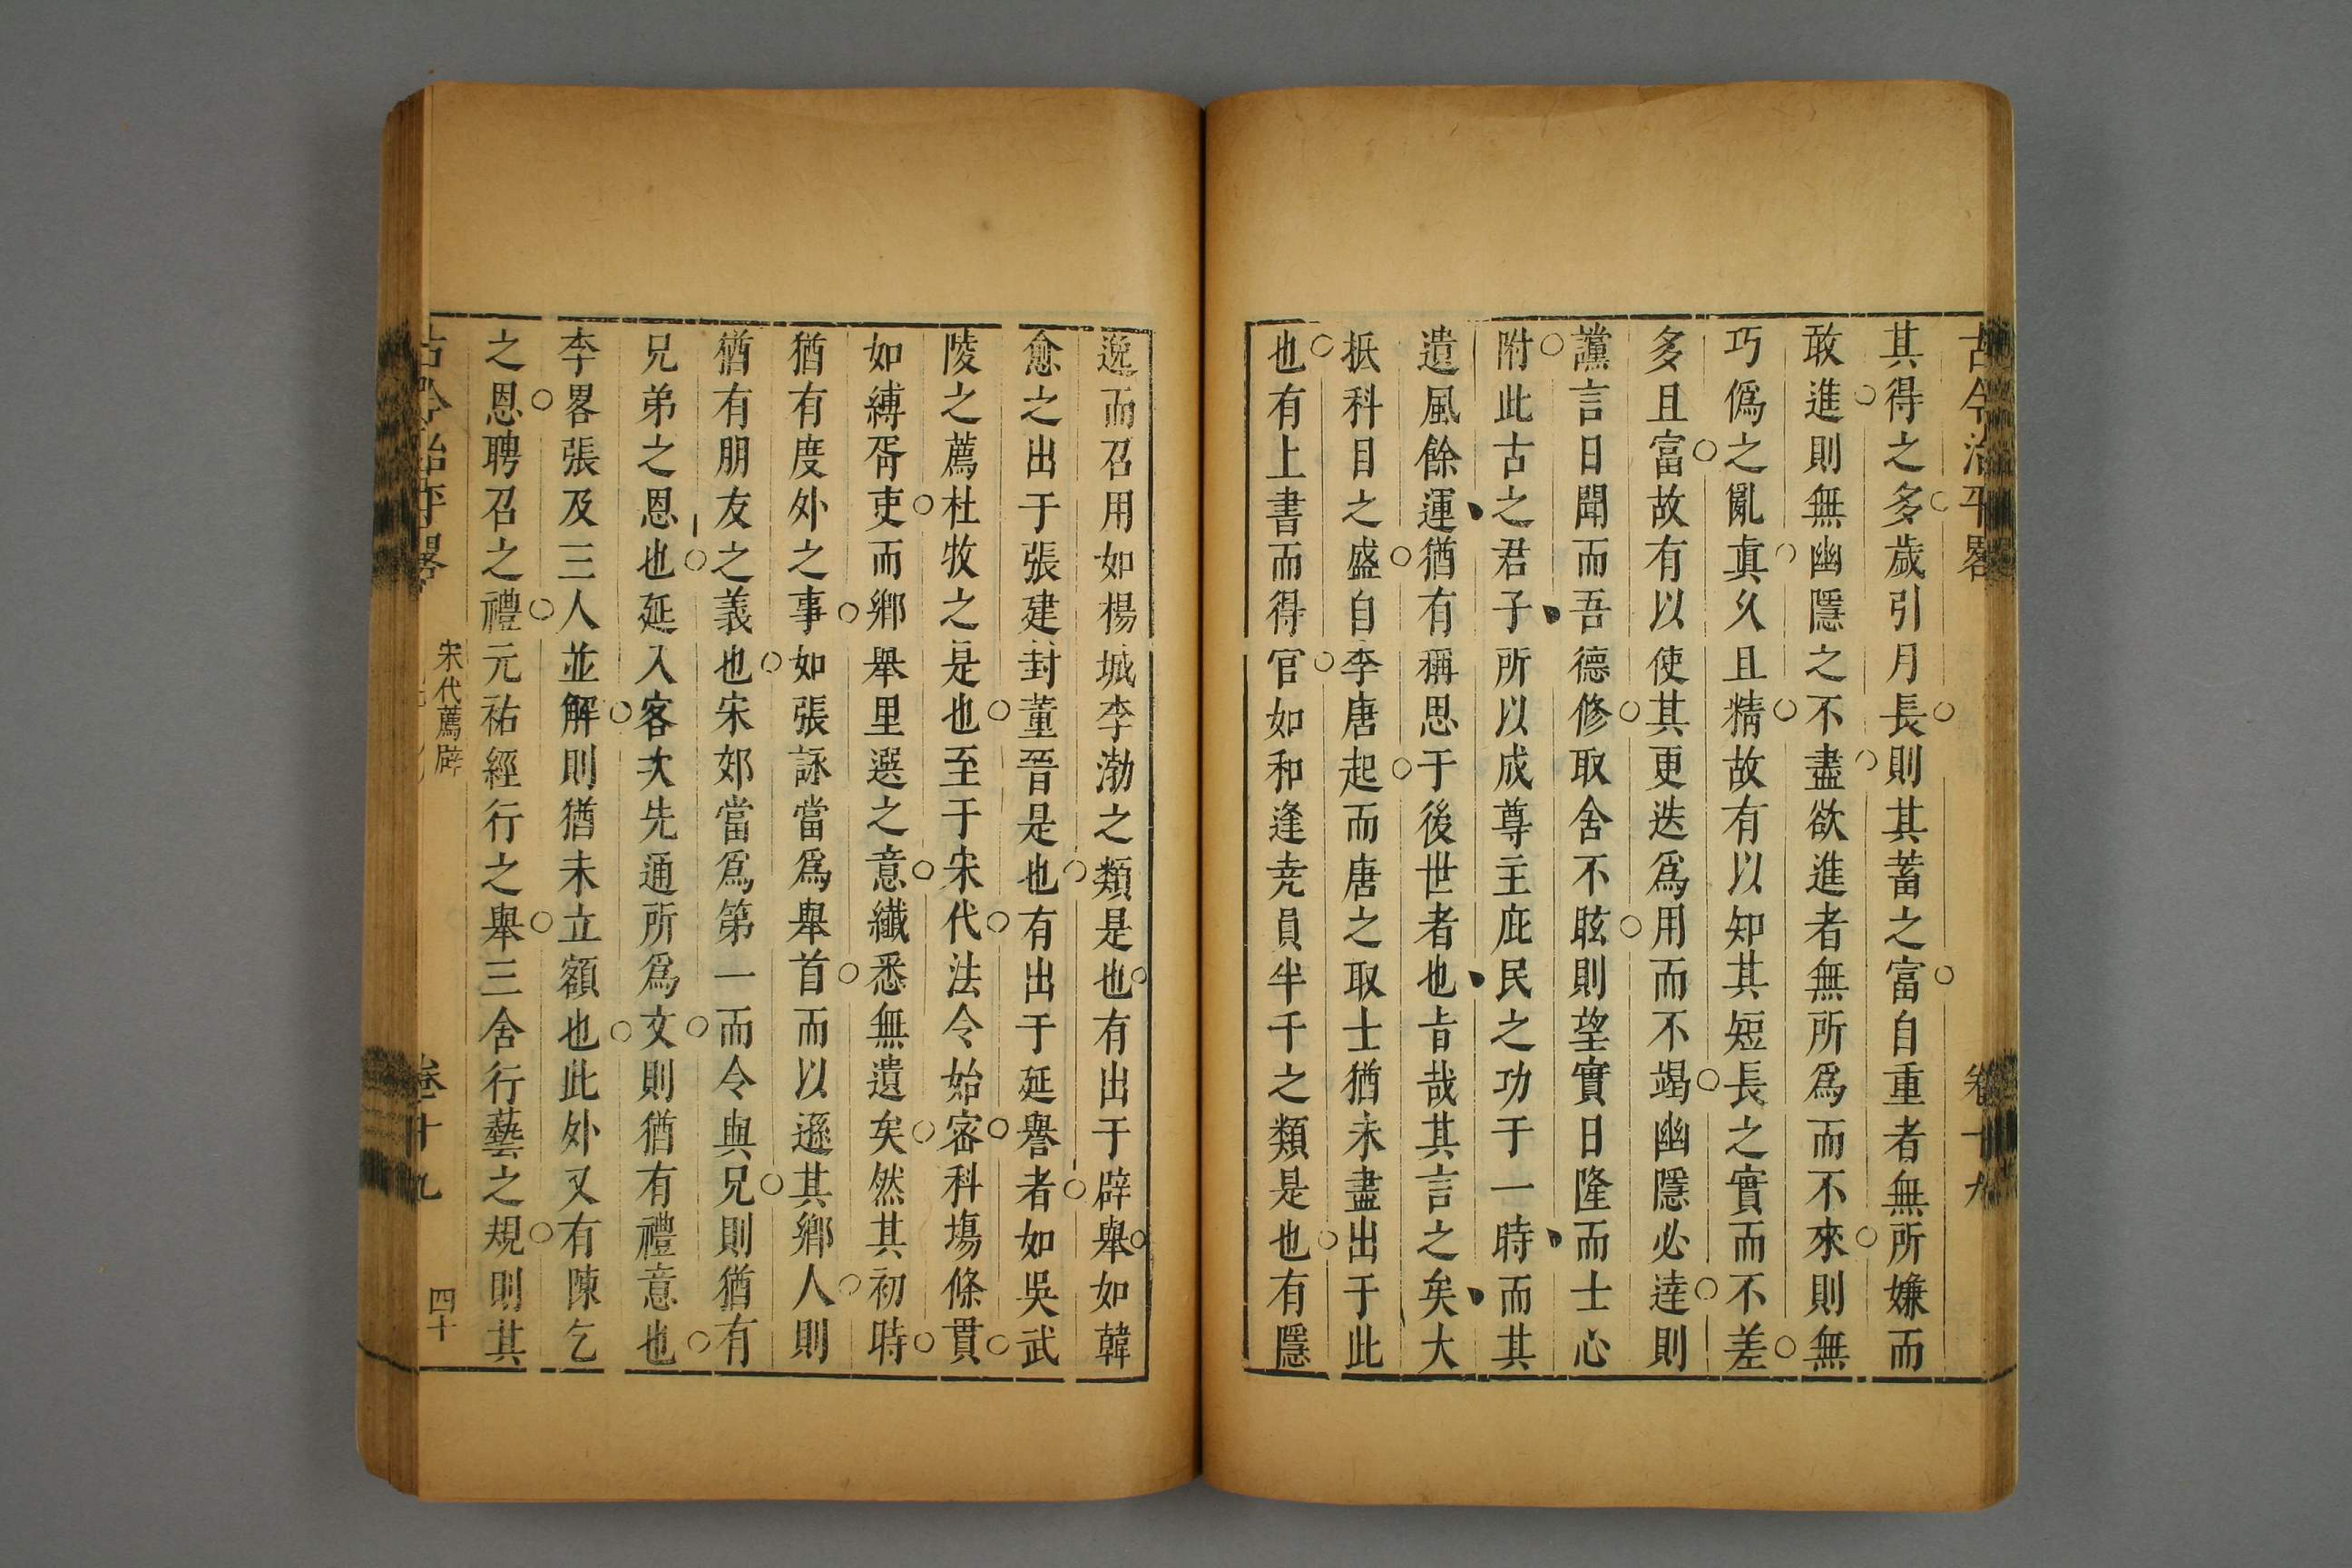 古今治平畧
卷十九
其得之多歲引月長則其蓄之富自重者無所嫌而
敢進則無幽隱之不盡欲進者無所爲而不來則無
巧僞之亂眞久且精故有以知其短長之實而不差
多且富故有以使其更迭爲用而不竭幽隱必達則
讜言日聞而吾德修取舍不眩則望實日隆而士心
附此古之君子所以成尊主庇民之功于一時而其
遺風餘運猶有稱思于後世者也旨哉其言之矣大
抵科目之盛自李唐起而唐之取士猶未盡出于此
也有上書而得官如和逢尭員半千之類是也有隱
逸而召用如楊城李渤之類是也有出于辟舉如韓
愈之出于張建封董晉是也有出于延譽者如吳武
陵之薦杜牧之是也至于宋代法令始密科塲條貫
如縛胥吏而鄉舉里選之意纖悉無遺矣然其初時
猶有度外之事如張詠當爲舉首而以遜其鄉人則
猶有朋友之義也宋郊當爲第一而令與兄則猶有
兄弟之恩也延入客次先通所爲文則猶有禮意也
李畧張及三人並解則猶未立額也此外又有陳乞
之恩聘召之禮元祐經行之舉三舍行藝之規則其
古今治平畧
宋代薦辟
卷十九
四十